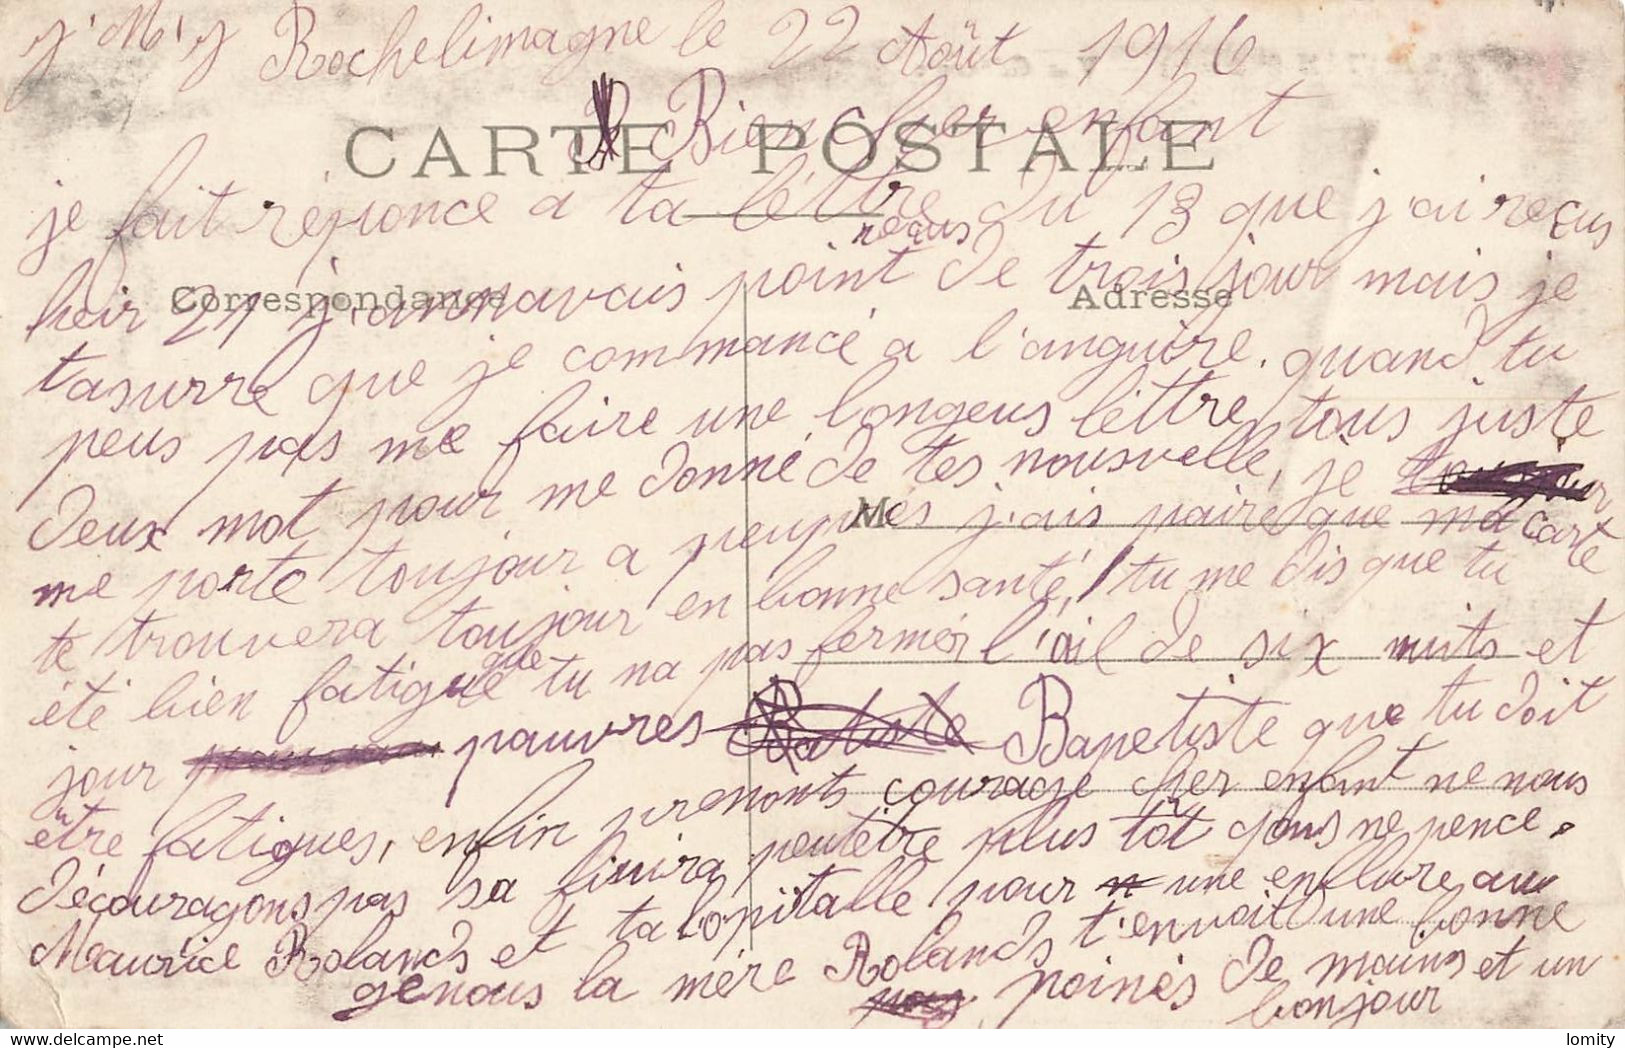 J' M' J Rochelimagne le 22 Août 1916
CARTE POSTALE
Bien cher enfant
je fait réponce a ta léttre du 13 que j'ai reçus
Correspondance
Adresse
heir 21 j'annavais point reçus de trois jour mais je
tasurre que je commancé a l'anguire. quand tu
peus pas me faire une longeus léttre, tous juste
deux mot pour me donné de tes nousvelle, je
M
me porte toujour a peuprés j'ais pairé que ma carte
te trouvera toujour en bonne santé, tu me dis que tu
été bien fatigue que tu na pas fermér l'œil de six nuits et
jour pauvres Bapetiste que tu doit
être fatigues, enfin prenonts courage cher enfant ne nous
décourageons pas sa finira peutêtre plus tôt qous ne pence.
Maurice Rolands et ta l'opitalle pour une enflure au
genous la mére Rolands t'envoit une bonne
poinés de mains et un
bonjour
lomity